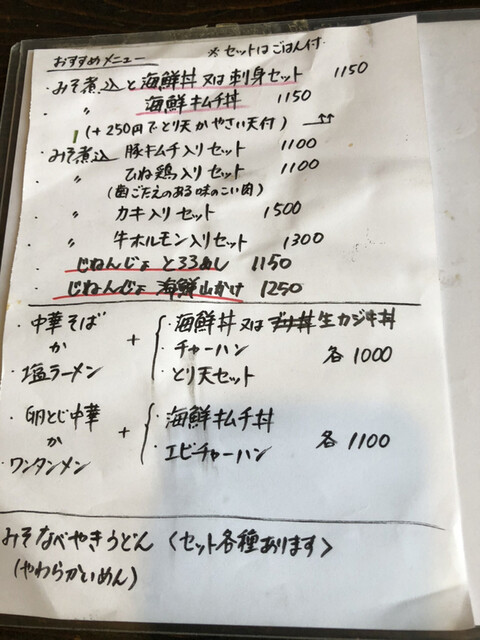 おすすめメニュー ※セットはごはん付
・みそ煮込と海鮮丼又は刺身セット 1150
・〃 海鮮キムチ丼 1150
(+250円でとり天かやさい天付)
・みそ煮込 豚キムチ入りセット 1100
・〃 ひね鶏入りセット 1100
(歯ごたえのある味のこい肉)
・〃 カキ入りセット 1500
・〃 牛ホルモン入りセット 1300
・じねんじょ とろろめし 1150
・じねんじょ 海鮮山かけ 1250
・中華そば
か
・塩ラーメン
+
・海鮮丼又は生カジキ丼
・チャーハン 各1000
・とり天セット
・卵とじ中華
か
・ワンタンメン
+
・海鮮キムチ丼
・エビチャーハン 各1100
みそなべやきうどん〈セット各種あります〉
(やわらかいめん)